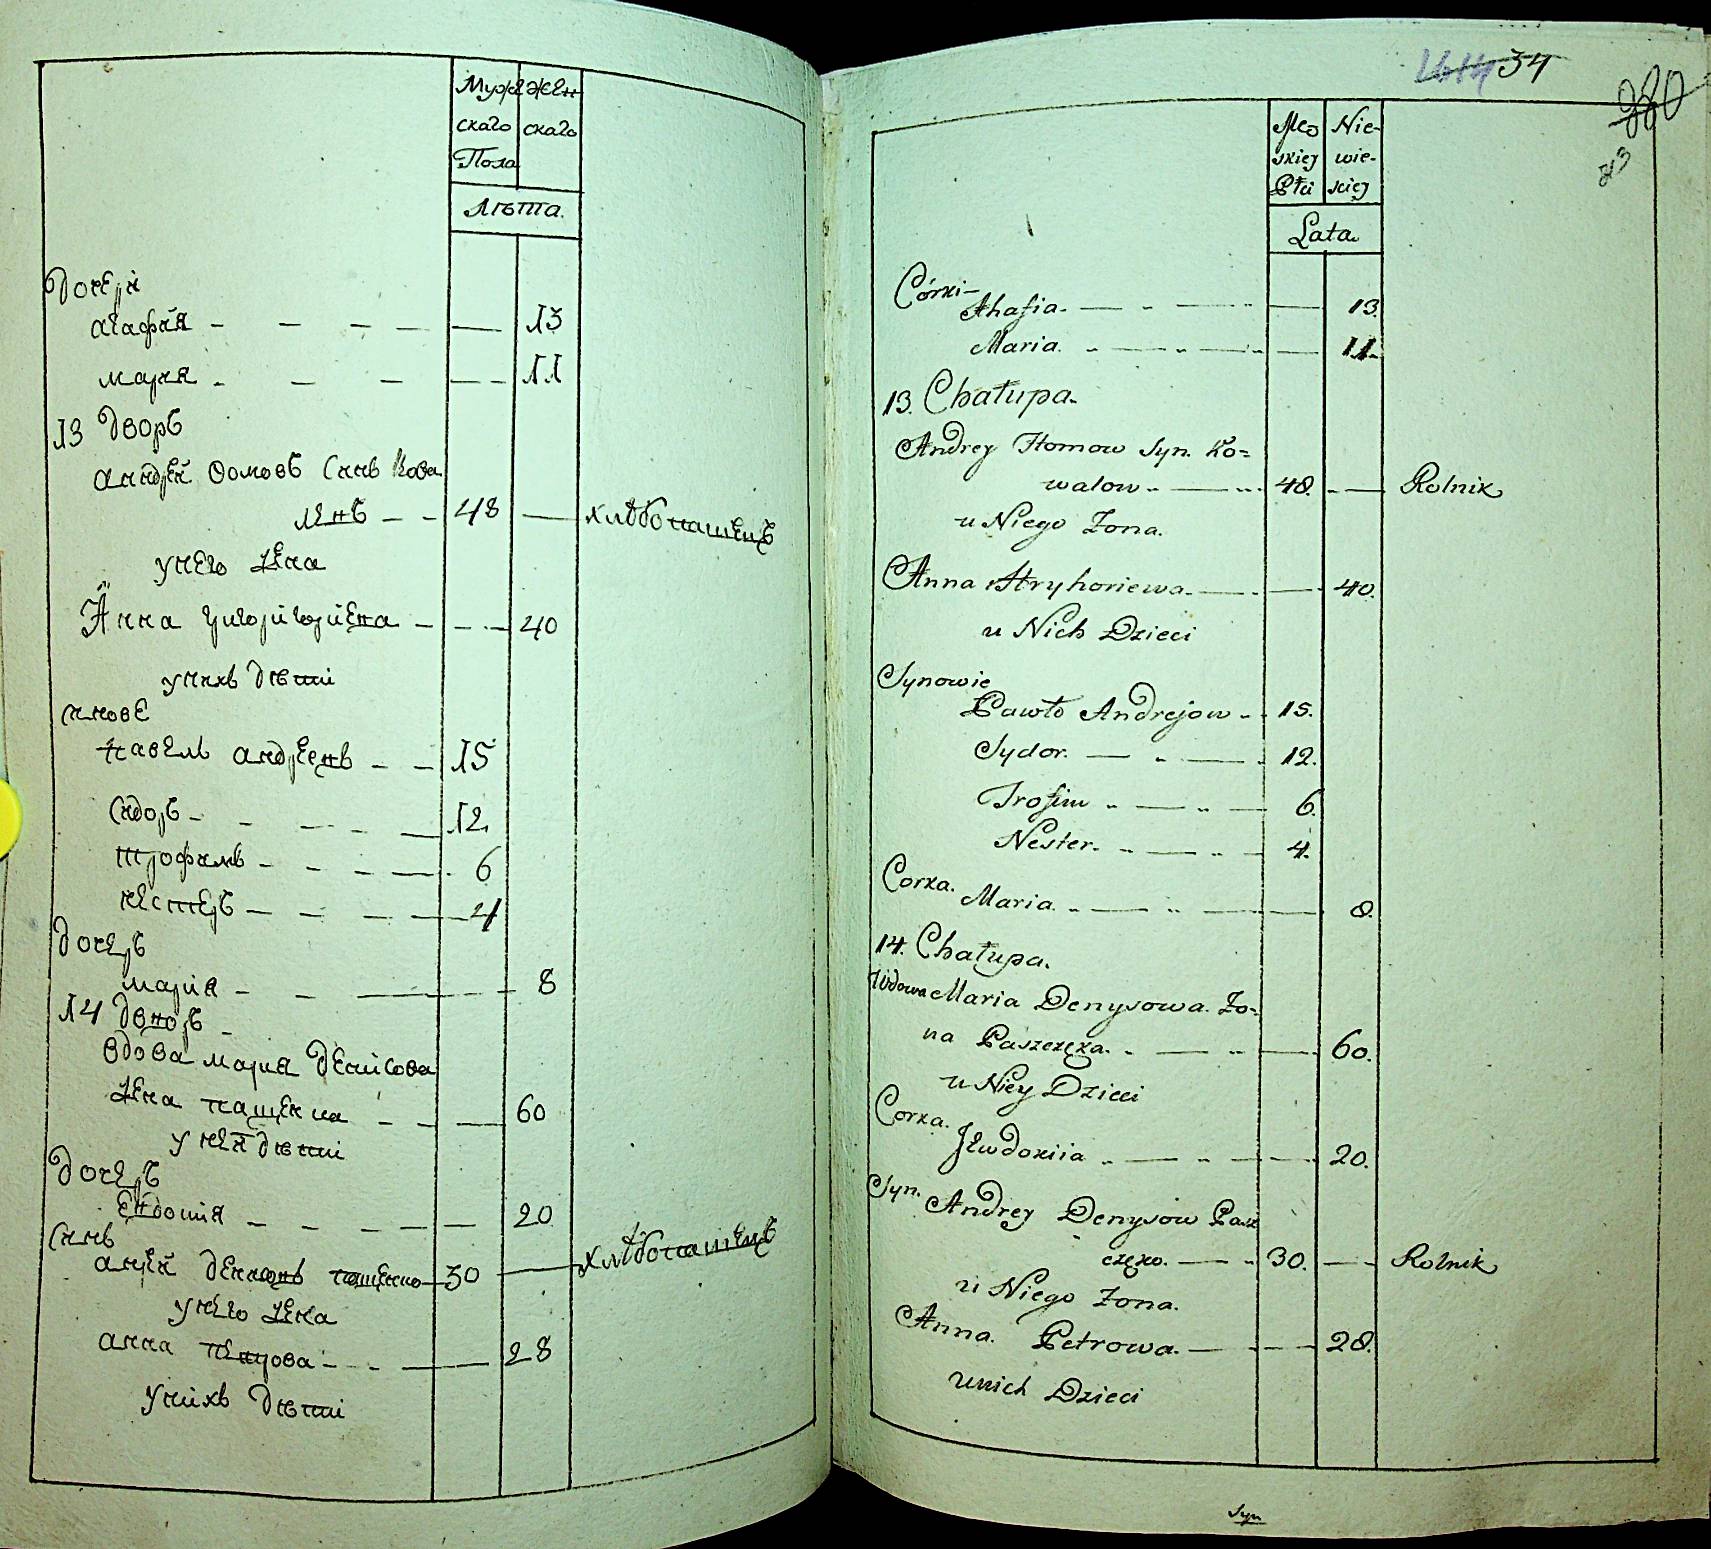 Муже Жен
скаго скаго
Пола
Лѣта.
Дочери
агафія 13
мария 11
13 дворъ
андрей Ѳомовъ Синъ Кова
ленъ 48 хлѣбопашецъ
у него жена
Анна григоригорйена 40
у нихъ дѣти
синове
павелъ андреенъ 15
сидоръ 12
трофимъ 6
нестеръ 4
дочеръ
марія 8
14 дворъ
вдова мария денисова
жена пащенка 60
у неи дѣти
дочеръ
евдошія 20
Синъ
андрей денисовъ пащенко 30 хлѣбопашецъ
у него жена
анна петрова 28
у нихъ дѣти
34
280
Męs Nie-
skiej wie-
Płci skiej
Lata
Córki
Ahafia 13.
Maria 11.
13. Chałupa.
Andrey Homow Syn. Ko=
walow 48. Rolnik
u Niego Zona.
Anna Hryhoriewa 40.
u Nich Dzieci
Synowie
Pawło Andrejow 15.
Sydor. 12.
Trofim 6.
Nester. 4.
Corka.
Maria 8.
14. Chałupa.
Wdowa Maria Denysowa. Zo=
na Paszczęka. 60.
u Niey Dzieci
Corka.
Jewdokiia 20.
Syn. Andrey Denysow Pasz
częko. 30. Rolnik
u Niego Zona.
Anna. Petrowa. 28.
u nich Dzieci
Syn